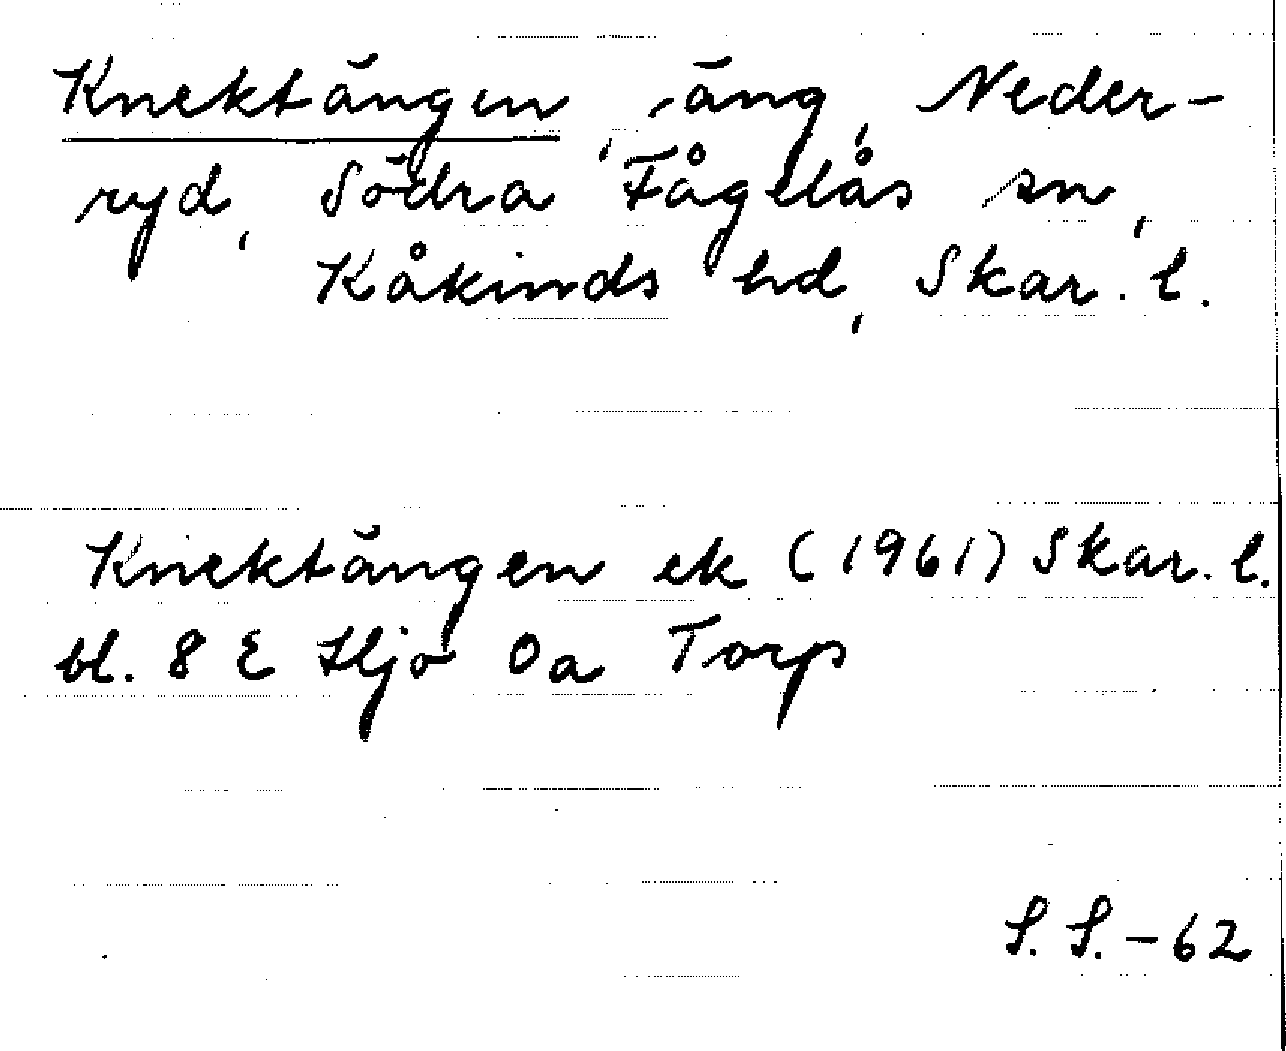 Knektängen, äng, Neder-
ryd, Södra Fågelås sn,
Kåkinds hd, Skar. l.
Knektängen ek (1961) Skar. l.
bl. 8 E Hjo 0a Torp
S. S. - 62